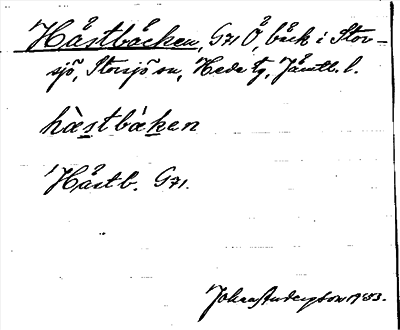 Håstbäcken, G71 Ö, bäck i Stor-
sjö, Storsjö sn, Hede tg, Jämtl. l.
hàstbàken
Håstb. G71.
Johan Anderson 1933.